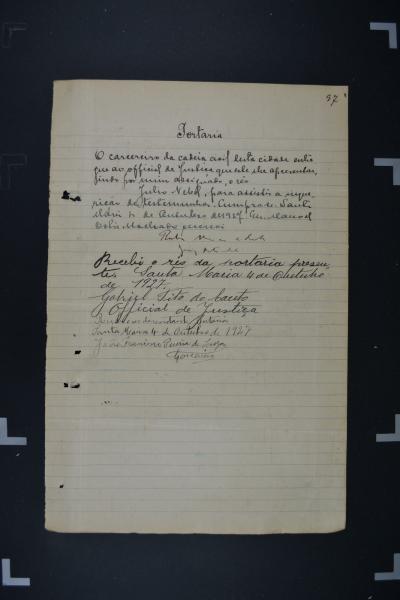 97
Portaria
O carcereiro da cadeia civil desta cidade entre
gue ao official de Justiça que este lhe apresentar,
indo por mim assignado, o réo
Julio Nebel, para assistir a inque
rição de testemunhas. Cumpra-se. Santa
Maria 4 de Outubro de 1927. Eu,
Machado escrevi
Recebi o réo da portaria presen
te, Santa Maria 4 de Outubro
de 1927.
Gabriel Tito do Canto
Official de Justiça
Santa Maria 4 de Outubro de 1927
João Francisco de Souza